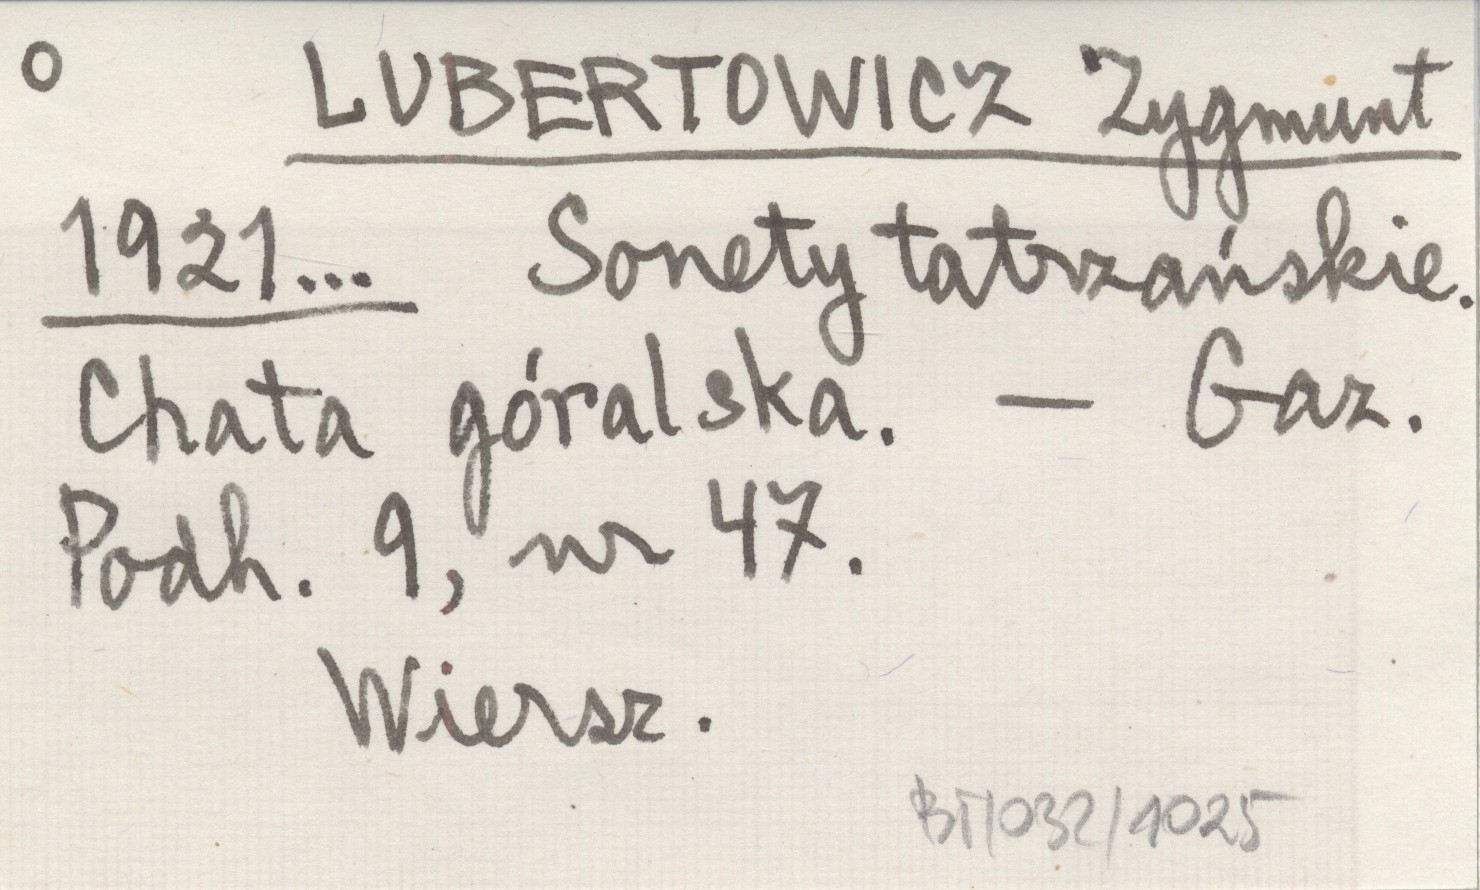 o LUBERTOWICZ Zygmunt
1921... Sonety tatrzańskie.
Chata góralska. — Gaz.
Podh. 9, nr 47.
Wiersz.
BT/032/1025